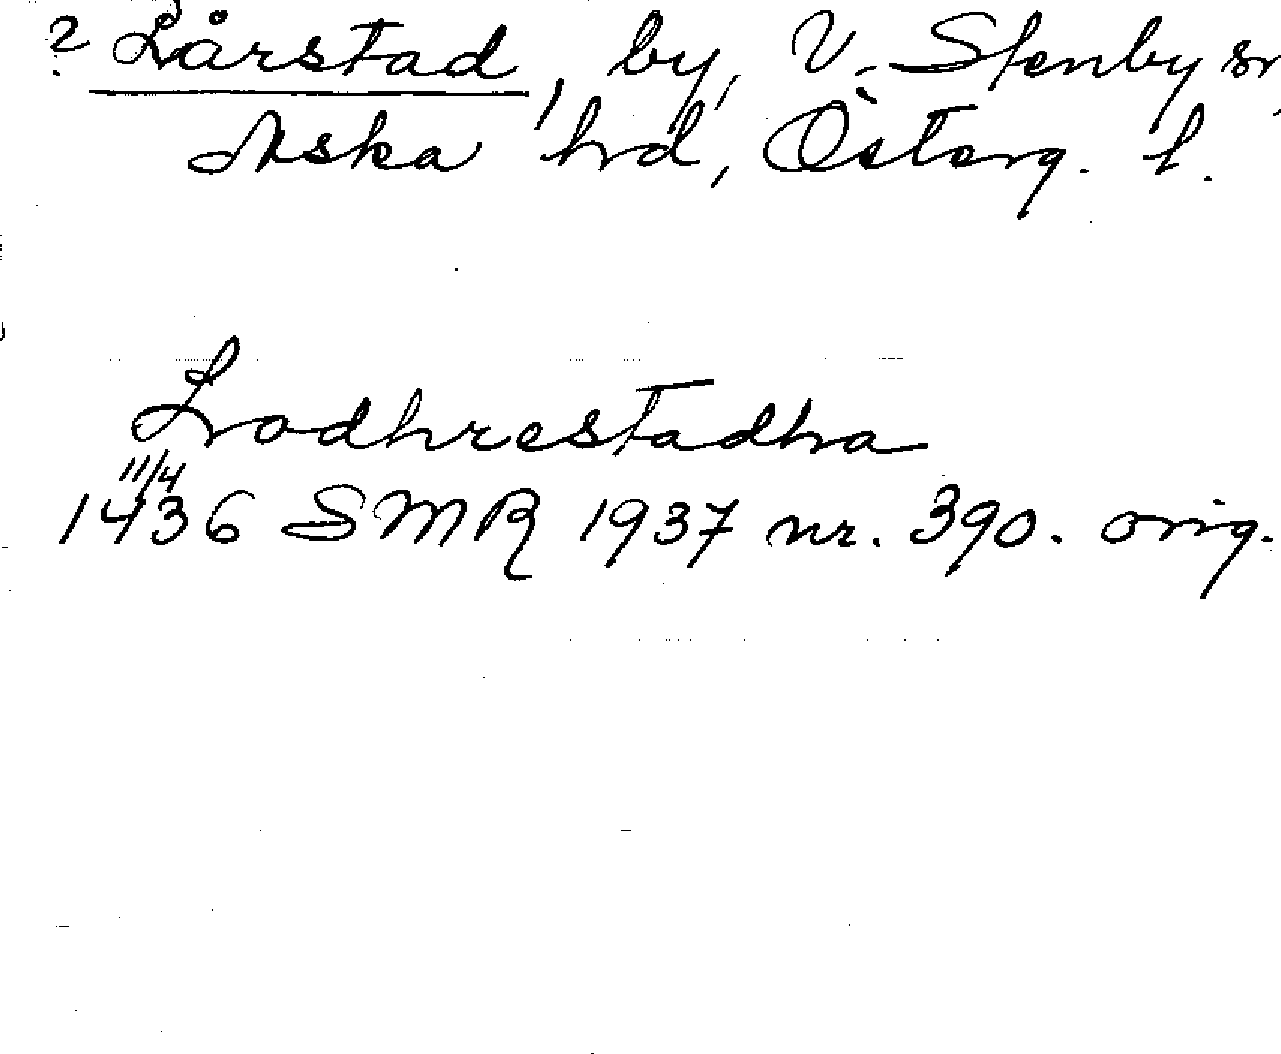 ? Lårstad, by, V. Stenby sn,
Aska hrd, Österg. l.
Lodhrestadha
11/4
1436 SMR 1937 nr. 390. orig.